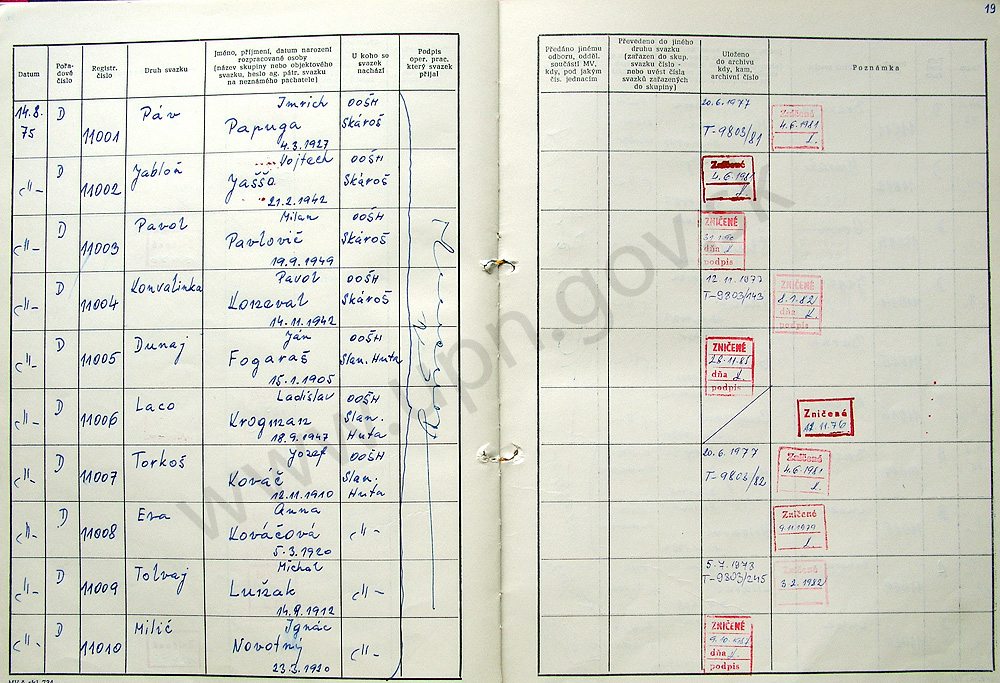 19
Datum
Pořadové číslo
Registr. číslo
Druh svazku
Jméno, příjmení, datum narození
rozpracované osoby
(název skupiny nebo objektového
svazku, heslo ag. pátr. svazku
na neznámého pachatele)
U koho se
svazek
nachází
Podpis
oper. prac.
který svazek
přijal
Předáno jinému
odboru, odděl.
součásti MV,
kdy, pod jakým
čís. jednacím
Převedeno do jiného
druhu svazku
(zařazen do skup.
svazku číslo -
nebo uvést čísla
svazků zařazených
do skupiny)
Uloženo
do archivu
kdy, kam,
archivní číslo
Poznámka
14.8.
75
D
11001
Páv
Imrich
Papuga
4.3.1927
OOŠH
Skároš
20.6.1977
T-9803/81
Zničené
4.6.1981
-"-
D
11002
Jabloň
Vojtech
Jaššo
21.2.1942
OOŠH
Skároš
Zničené
4.6.1981
-"-
D
11003
Pavol
Milan
Pavlovič
19.9.1949
OOŠH
Skároš
ZNIČENÉ
dňa
podpis
-"-
D
11004
Konvalinka
Pavol
14.11.1942
OOŠH
Skároš
12.11.1977
T-9803/143
ZNIČENÉ
8.1.82
dňa
podpis
-"-
D
11005
Dunaj
Ján
Fogaraš
15.1.1905
OOŠH
Slan. Huta
ZNIČENÉ
dňa
podpis
-"-
D
11006
Laco
Ladislav
Krogman
18.9.1947
OOŠH
Slan.
Huta
Zničené
12.11.76
-"-
D
11007
Torkoš
Jozef
Kováč
12.11.1910
OOŠH
Slan.
Huta
20.6.1977
T-9803/82
Zničené
4.6.1981
-"-
D
11008
Eva
Anna
Kováčová
5.3.1920
-"-
Zničené
9.11.1979
-"-
D
11009
Tolvaj
Michal
Lužak
14.9.1912
-"-
5.7.1973
T-9803/245
Zničené
3.2.1982
-"-
D
11010
Milič
Ignác
Novotný
23.3.1920
-"-
ZNIČENÉ
dňa
podpis
www.upn.gov.sk